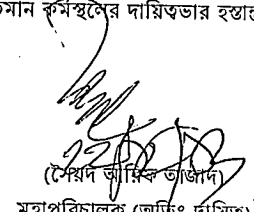 তমান কর্মস্থলের দায়িত্বভার হস্তান্ত
(সৈয়দ আরিফ আজাদ)
মহাপরিচালক (অতিঃ দায়িত্ব)